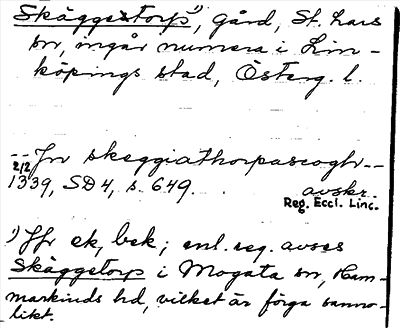 Skäggestorp¹), gård, St. Lars
sn, ingår numera i Lin-
köpings stad, Österg. l.
-- Jn skeggiathorpascogh --
2/2
1339, SD 4, s. 649. avskr.
Reg. Eccl. Linc.
¹) Jfr ek, bek; enl. reg. avses
Skäggetorp i Mogata sn, Ham-
markinds hd, vilket är föga sanno-
likt.